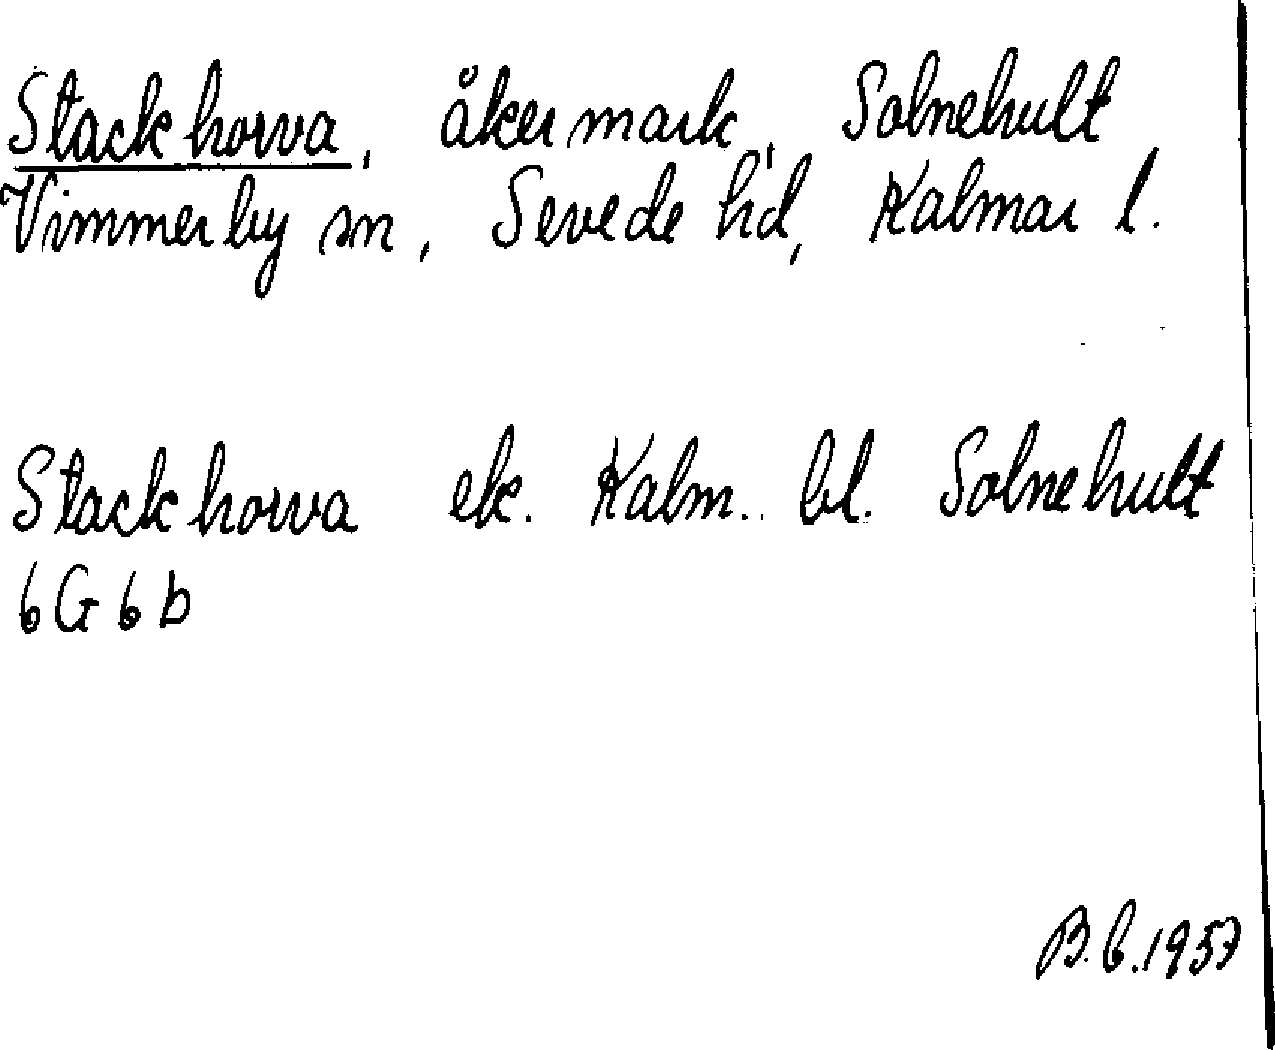 Stackhorva, åkermark, Solnehult
Vimmerby sn, Sevede hd, Kalmar l.
Stackhorva ek. Kalm. bl. Solnehult
6G6b
B.C.1957